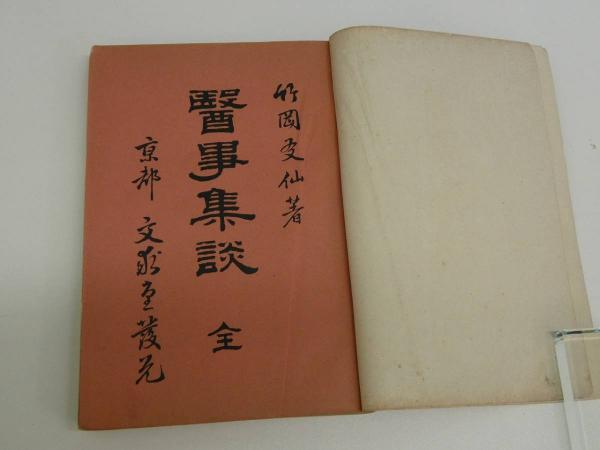 竹岡友仙著
醫事集談 全
京都 文求堂發兌